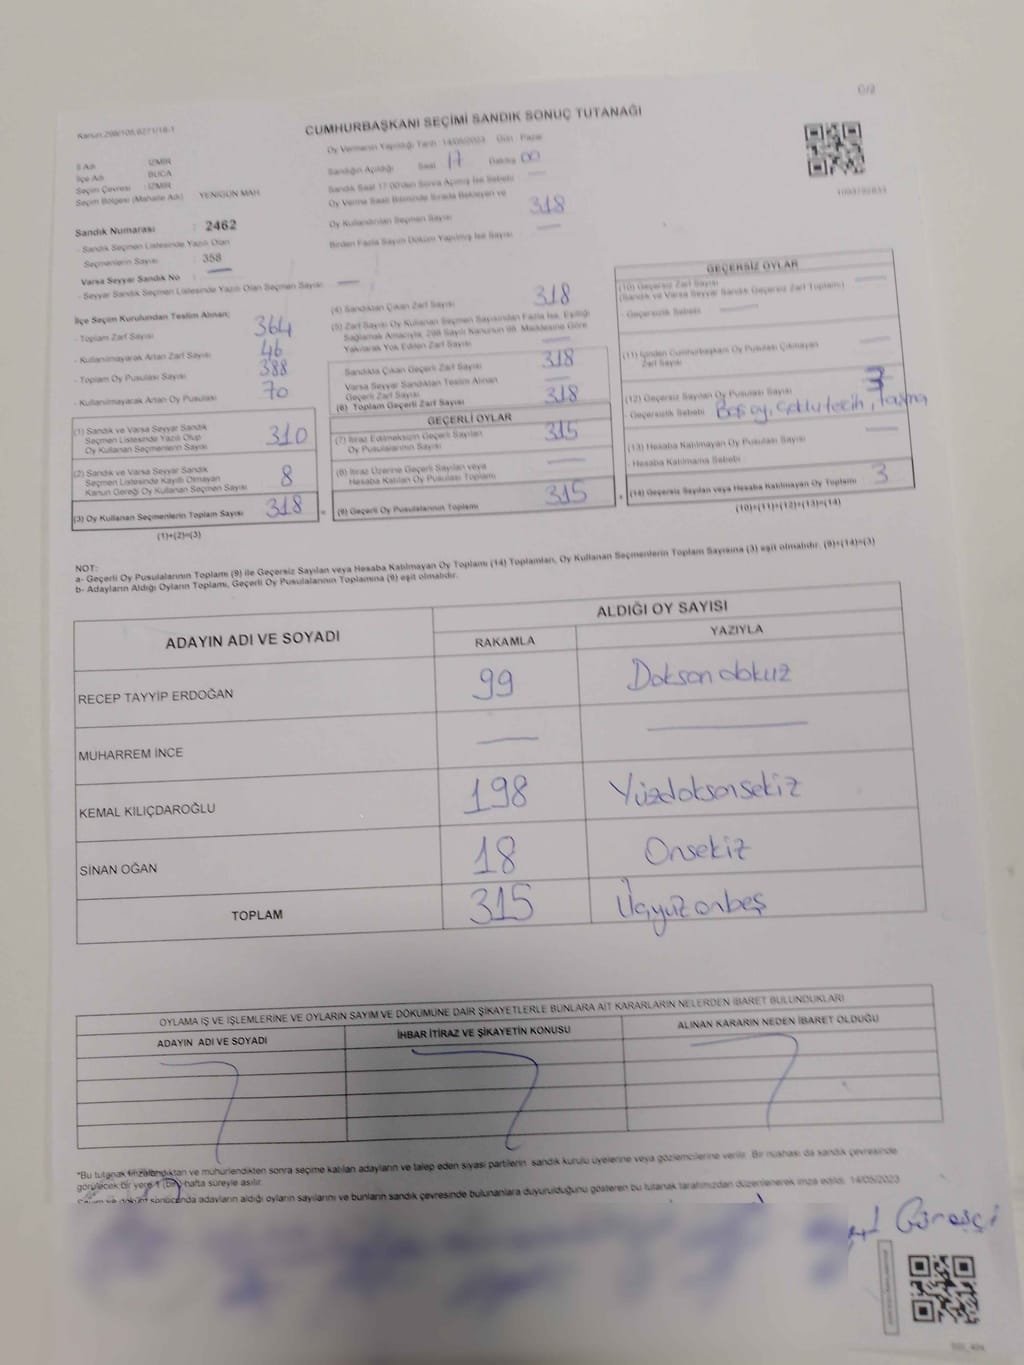 C/2
Kanun:298/105,6271/18-1
CUMHURBAŞKANI SEÇİMİ SANDIK SONUÇ TUTANAĞI
Oy Vermenin Yapıldığı Tarih :14/05/2023 Gün : Pazar
İl Adı : İZMİR
İlçe Adı : BUCA
Seçim Çevresi : İZMİR
Seçim Bölgesi (Mahalle Adı) : YENİGÜN MAH.
Sandığın Açıldığı Saat 17 Dakika 00
Sandık Saat 17:00'den Sonra Açılmış İse Sebebi : —
Oy Verme Saati Bitiminde Sırada Bekleyen ve
Oy Kullandırılan Seçmen Sayısı 318
Birden Fazla Sayım Döküm Yapılmış İse Sayısı : —
Sandık Numarası : 2462
- Sandık Seçmen Listesinde Yazılı Olan
Seçmenlerin Sayısı : 358
Varsa Seyyar Sandık No : —
- Seyyar Sandık Seçmen Listesinde Yazılı Olan Seçmen Sayısı: —
İlçe Seçim Kurulundan Teslim Alınan;
- Toplam Zarf Sayısı : 364
- Kullanılmayarak Artan Zarf Sayısı : 46
- Toplam Oy Pusulası Sayısı : 388
- Kullanılmayarak Artan Oy Pusulası : 70
(1) Sandık ve Varsa Seyyar Sandık
Seçmen Listesinde Yazılı Olup
Oy Kullanan Seçmenlerin Sayısı 310
(2) Sandık ve Varsa Seyyar Sandık
Seçmen Listesinde Kayıtlı Olmayan
Kanun Gereği Oy Kullanan Seçmen Sayısı 8
(3) Oy Kullanan Seçmenlerin Toplam Sayısı 318
(1)+(2)=(3)
(4) Sandıktan Çıkan Zarf Sayısı 318
(5) Zarf Sayısı Oy Kullanan Seçmen Sayısından Fazla İse, Eşitliği
Sağlamak Amacıyla, 298 Sayılı Kanunun 98. Maddesine Göre
Yakılarak Yok Edilen Zarf Sayısı —
Sandıkta Çıkan Geçerli Zarf Sayısı 318
Varsa Seyyar Sandıktan Teslim Alınan
Geçerli Zarf Sayısı —
(6) Toplam Geçerli Zarf Sayısı 318
GEÇERLİ OYLAR
(7) İtiraz Edilmeksizin Geçerli Sayılan
Oy Pusulalarının Sayısı 315
(8) İtiraz Üzerine Geçerli Sayılan veya
Hesaba Katılan Oy Pusulası Toplamı —
(9) Geçerli Oy Pusulalarının Toplamı 315
GEÇERSİZ OYLAR
(10) Geçersiz Zarf Sayısı
(Sandık ve Varsa Seyyar Sandık Geçersiz Zarf Toplamı) —
- Geçersizlik Sebebi —
(11) İçinden Cumhurbaşkanı Oy Pusulası Çıkmayan
Zarf Sayısı —
(12) Geçersiz Sayılan Oy Pusulası Sayısı 3
- Geçersizlik Sebebi Boş oy, çoklu tercih, Taşma
(13) Hesaba Katılmayan Oy Pusulası Sayısı —
- Hesaba Katılmama Sebebi
(14) Geçersiz Sayılan veya Hesaba Katılmayan Oy Toplamı 3
(10)+(11)+(12)+(13)=(14)
NOT:
a- Geçerli Oy Pusulalarının Toplamı (9) ile Geçersiz Sayılan veya Hesaba Katılmayan Oy Toplamı (14) Toplamları, Oy Kullanan Seçmenlerin Toplam Sayısına (3) eşit olmalıdır. (9)+(14)=(3)
b- Adayların Aldığı Oyların Toplamı, Geçerli Oy Pusulalarının Toplamına (9) eşit olmalıdır.
ADAYIN ADI VE SOYADI ALDIĞI OY SAYISI
RAKAMLA YAZIYLA
RECEP TAYYİP ERDOĞAN 99 Doksan dokuz
MUHARREM İNCE — —
KEMAL KILIÇDAROĞLU 198 Yüzdoksansekiz
SİNAN OĞAN 18 Onsekiz
TOPLAM 315 Üçyüz onbeş
OYLAMA İŞ VE İŞLEMLERİNE VE OYLARIN SAYIM VE DÖKÜMÜNE DAİR ŞİKAYETLERLE BUNLARA AİT KARARLARIN NELERDEN İBARET BULUNDUKLARI
ADAYIN ADI VE SOYADI İHBAR İTİRAZ VE ŞİKAYETİN KONUSU ALINAN KARARIN NEDEN İBARET OLDUĞU
*Bu tutanak imzalandıktan ve mühürlendikten sonra seçime katılan adayların ve talep eden siyasi partilerin sandık kurulu üyelerine veya gözlemcilerine verilir. Bir nüshası da sandık çevresinde
görülecek bir yere 1 (bir) hafta süreyle asılır.
Sayım ve döküm sonucunda adayların aldığı oyların sayılarını ve bunların sandık çevresinde bulunanlara duyurulduğunu gösteren bu tutanak tarafımızdan düzenlenerek imza edildi. 14/05/2023